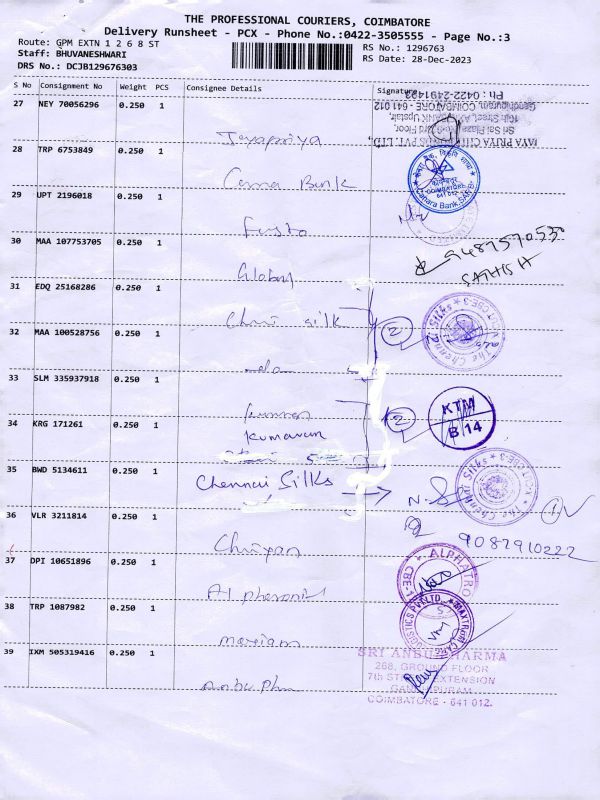 THE PROFESSIONAL COURIERS, COIMBATORE
Delivery Runsheet - PCX - Phone No.:0422-3505555 - Page No.:3
Route: GPM EXTN 1 2 6 8 ST
RS No.: 1296763
Staff: BHUVANESHWARI
RS Date: 28-Dec-2023
DRS No.: DCJB129676303
S No Consignment No Weight PCS Consignee Details Signature
27 NEY 70056296 0.250 1
Ph : 0422-2491423
Gandhipuram, COIMBATORE - 641 012
Jayapriya
28 TRP 6753849 0.250 1
Canara Bank
COIMBATORE
641 012
Canara Bank,
29 UPT 2196018 0.250 1
30 MAA 107753705 0.250 1
9487570530
SATHISH
Global
31 EDQ 25168286 0.250 1
Chennai silk
2
The Chennai Silks CBE-3
32 MAA 100528756 0.250 1
33 SLM 335937918 0.250 1
2
KTM
B/14
34 KRG 171261 0.250 1
Kumaran
35 BWD 5134611 0.250 1
Chennai Silks
The Chennai Silks CBE-3
N.S
1
36 VLR 3211814 0.250 1
9087910222
37 DPI 10651896 0.250 1
ALPHATRO
CBE-1
38 TRP 1087982 0.250 1
LOGISTICS PVT LTD.
Mariam
39 IXM 505319416 0.250 1
SRI ANBU PHARMA
268, GROUND FLOOR
7th STREET EXTENSION
GANDHIPURAM
COIMBATORE - 641 012.
anbu.Phm